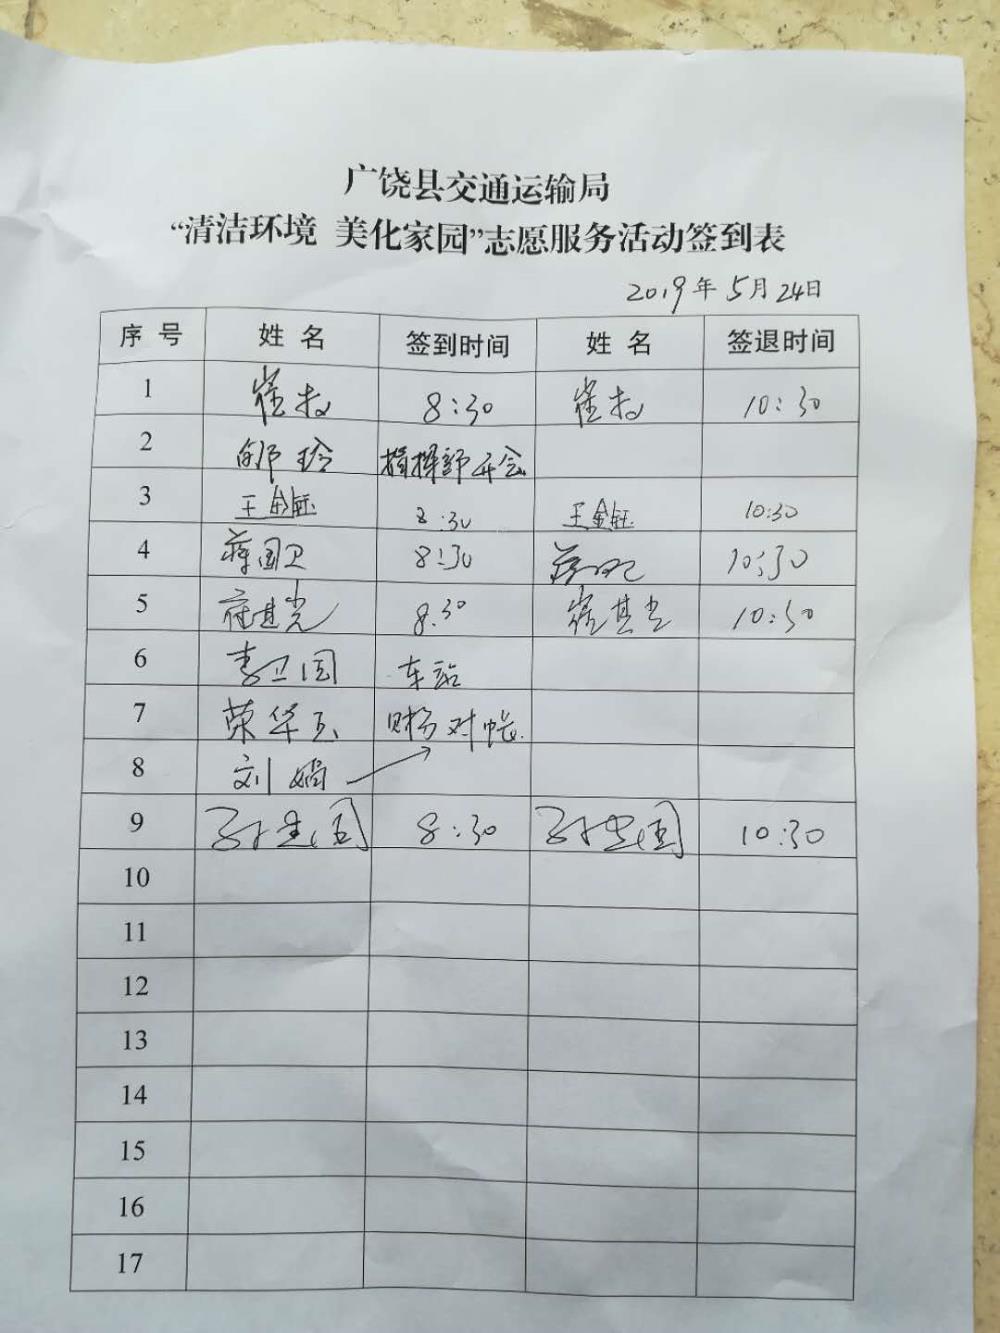 广饶县交通运输局
“清洁环境 美化家园”志愿服务活动签到表
2019年5月24日
序号 姓名 签到时间 姓名 签退时间
1 崔 8:30 崔 10:30
2 玲 指挥部开会
3 王金钰 8:30 王金钰 10:30
4 蒋国卫 8:30 蒋 10:30
5 崔其光 8:30 崔其光 10:30
6 李卫国 车站
7 荣华玉 财务对帐
8 刘娟
9 孙 国 8:30 孙 国 10:30
10
11
12
13
14
15
16
17